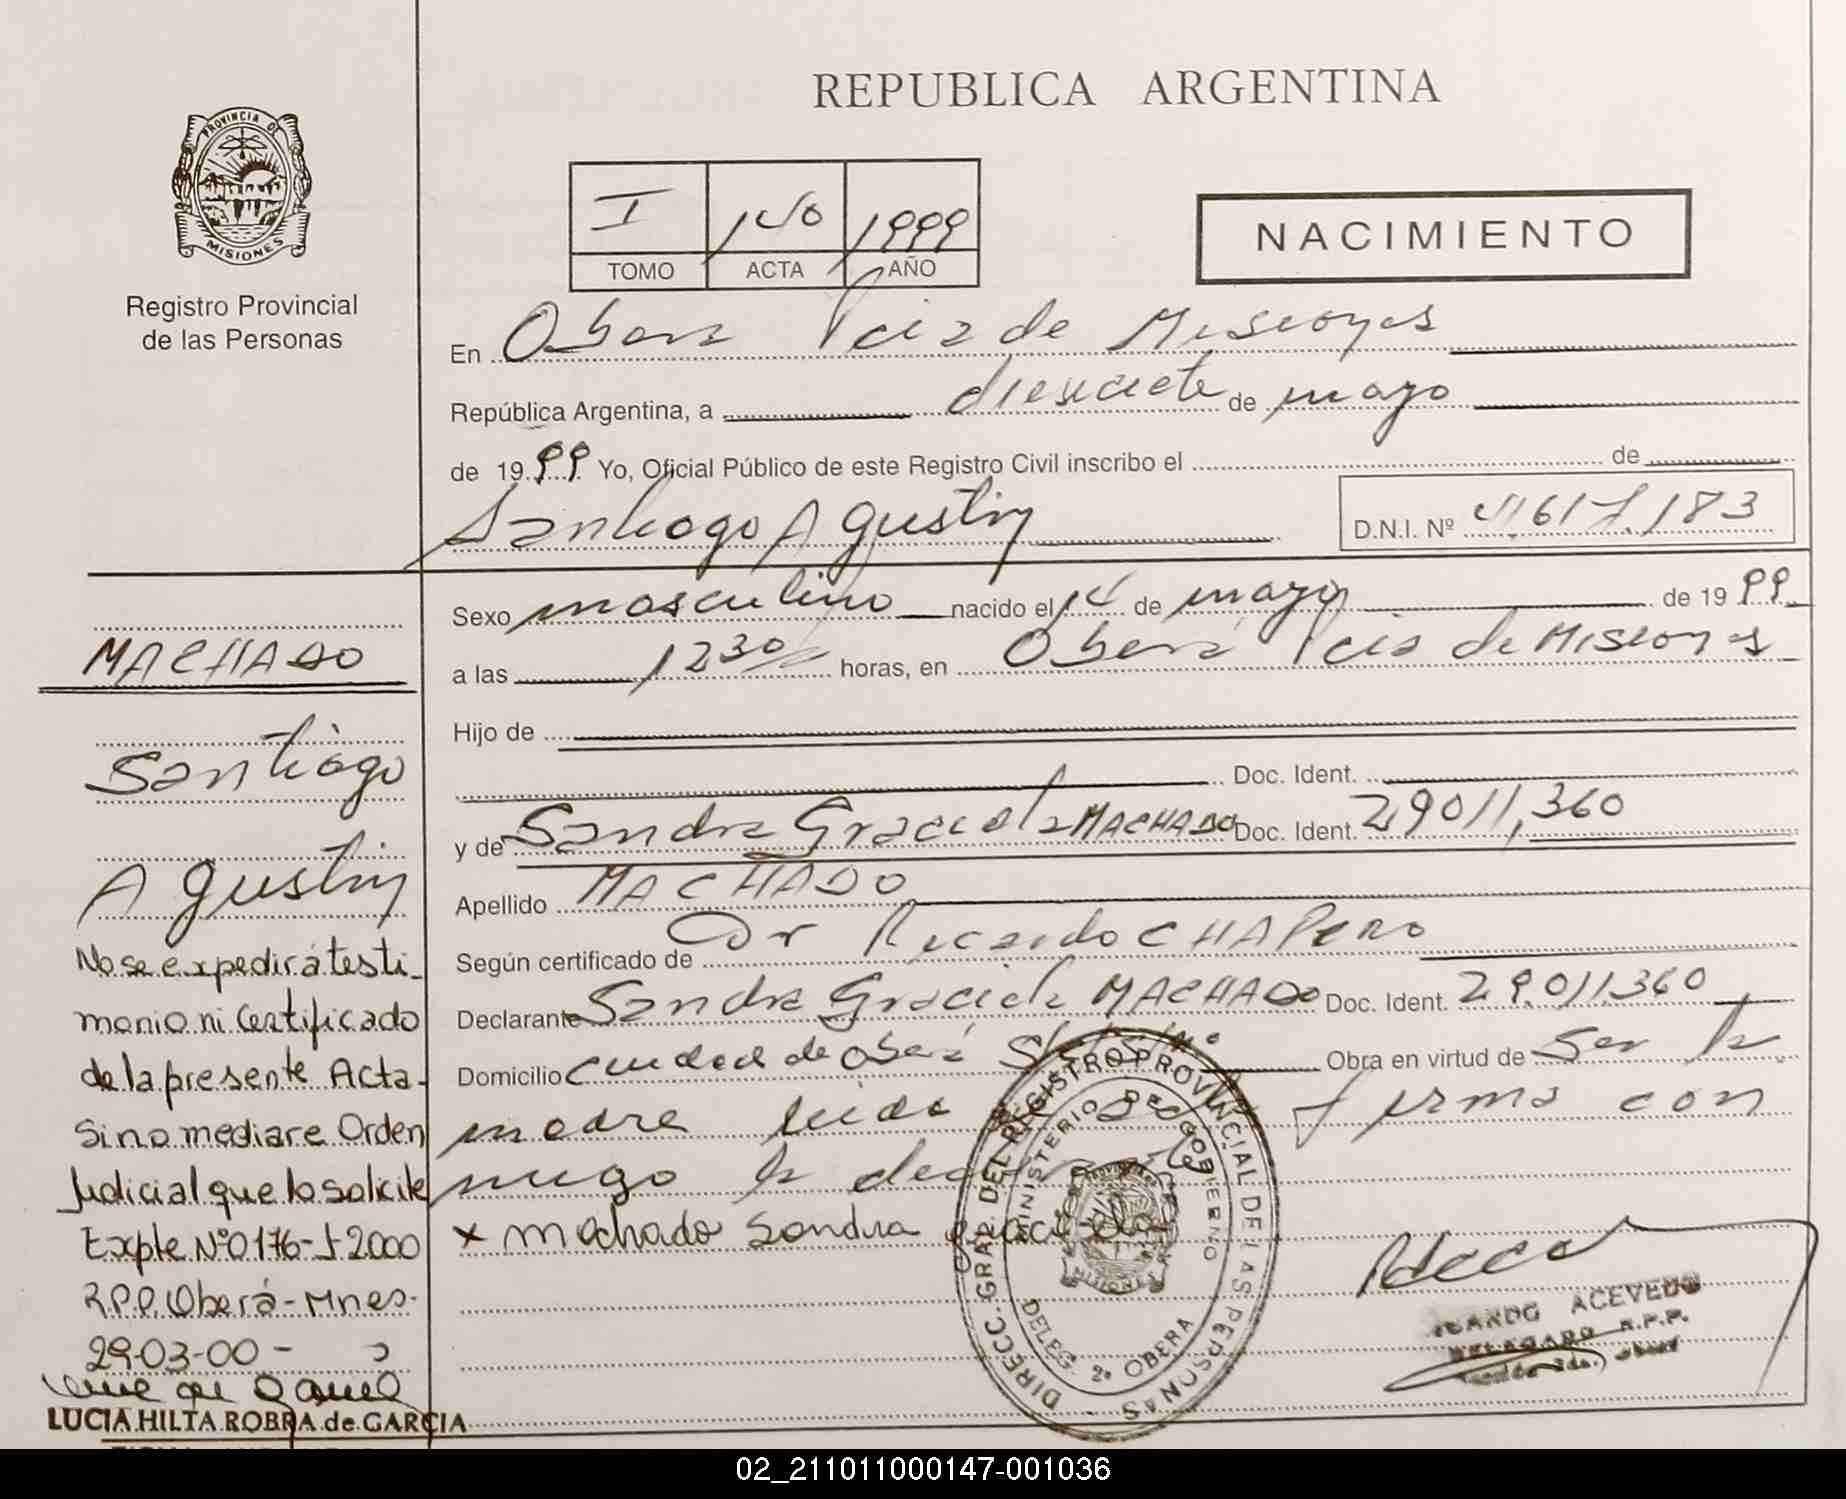 REPUBLICA ARGENTINA
PROVINCIA DE
MISIONES
Registro Provincial
de las Personas
I 140 1999
TOMO ACTA AÑO
NACIMIENTO
En Oberá Pcia de Misiones
República Argentina, a diesciete de mayo
de 1999 Yo, Oficial Público de este Registro Civil inscribo el de
Santiago Agustin
D.N.I. Nº 41.617.183
Sexo masculino nacido el 14 de mayo de 1999
a las 1230 horas, en Oberá Pcia de Misiones
Hijo de
Doc. Ident.
y de Sandra Graciela MACHADO Doc. Ident. 29011,360
Apellido MACHADO
Según certificado de Dr Ricardo CHAPERO
Declarante Sandra Graciela MACHADO Doc. Ident. 29.011.360
Domicilio ciudad de Oberá Obra en virtud de Ser la
madre leida firma con
migo la
x machado Sandra graciela
MACHADO
Santiago
Agustin
No se expedirá testi-
monio ni Certificado
de la presente Acta-
Sino mediare Orden
Judicial que lo solicite
Expte Nº0176-J-2000
R.P.P. Oberá-Mnes-
29-03-00-
LUCIA HILTA ROBRA de GARCIA
DIRECC. GRAL. DEL REGISTRO PROVINCIAL DE LAS PERSONAS
MINISTERIO DE GOBIERNO
MISIONES
DELEG. 2ª OBERA
ACEVEDO
DELEGADO R.P.P.
02_211011000147-001036